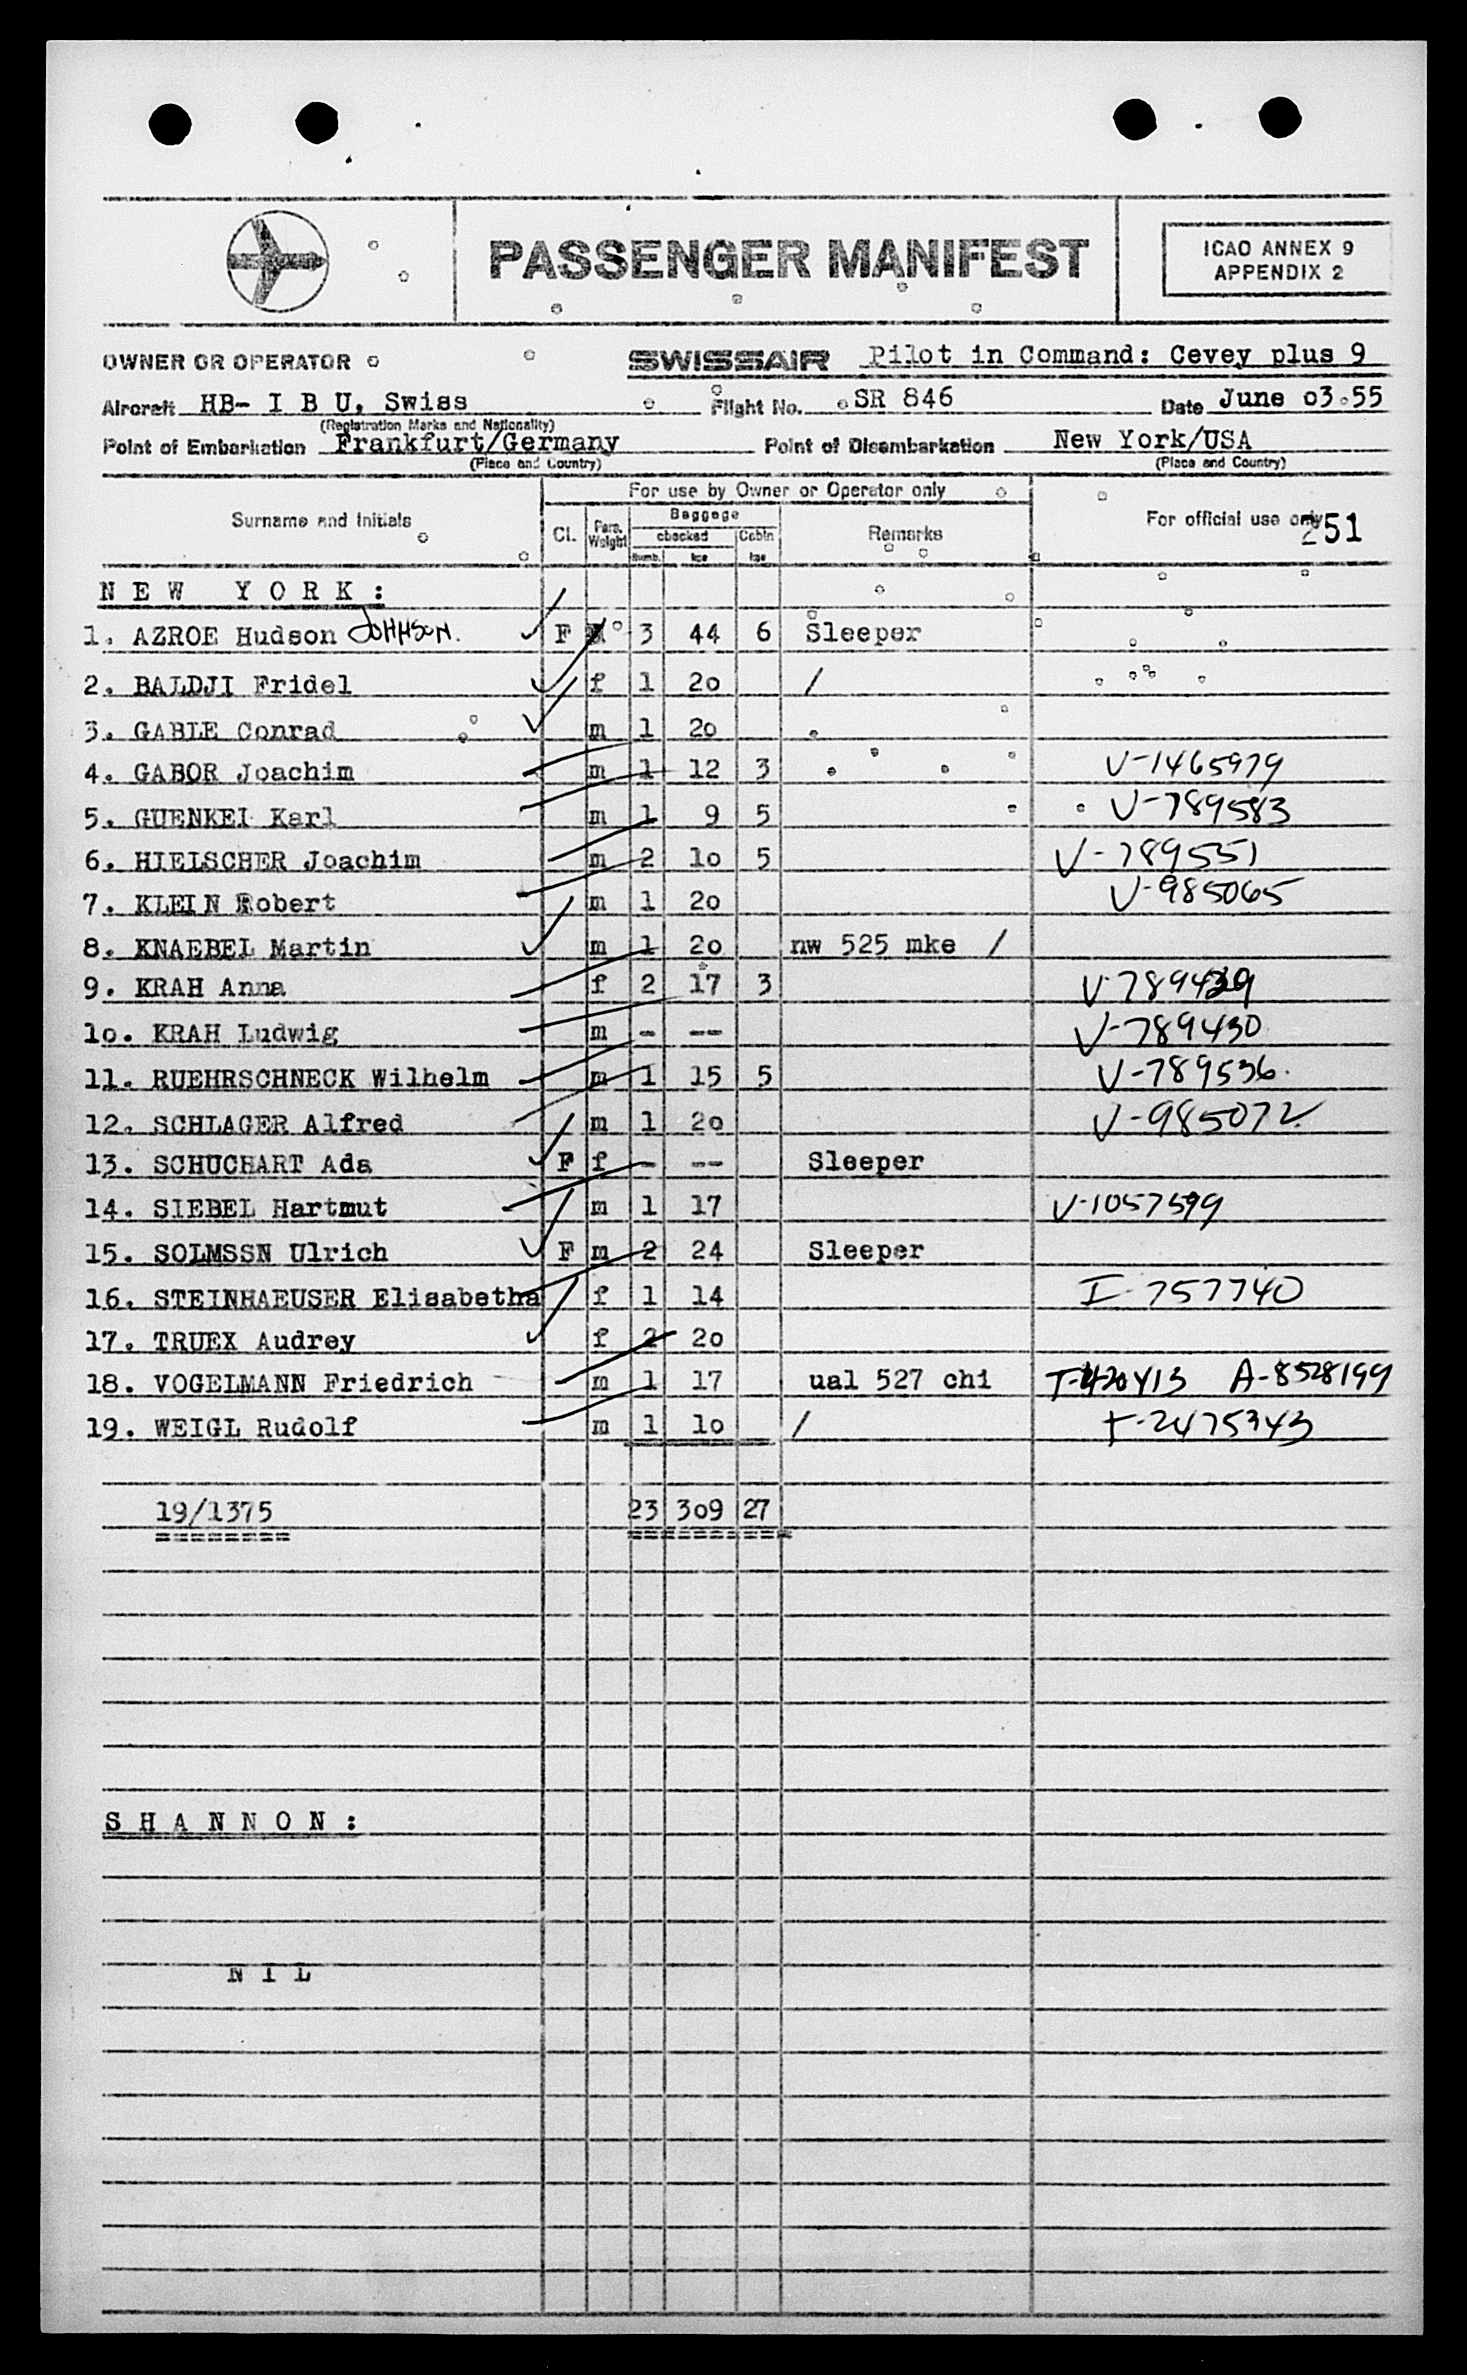 PASSENGER MANIFEST
ICAO ANNEX 9
APPENDIX 2
OWNER OR OPERATOR SWISSAIR Pilot in Command: Cevey plus 9
Aircraft HB- I B U, Swiss Flight No. SR 846 Date June o3.55
(Registration Marks and Nationality)
Point of Embarkation Frankfurt/Germany Point of Disembarkation New York/USA
(Place and Country) (Place and Country)
For use by Owner or Operator only
Surname and Initials Cl. Pers. Weight Baggage checked Numb. kgs Cabin kgs Remarks For official use only 251
N E W Y O R K :
1. AZROE Hudson JOHNSON. F 3 44 6 Sleeper
2. BALDJI Fridel f 1 2o /
3. GABLE Conrad m 1 2o
4. GABOR Joachim m 1 12 3 V-1465979
5. GUENKEL Karl m 1 9 5 V-789583
6. HIELSCHER Joachim m 2 1o 5 V-789551
7. KLEIN Robert m 1 2o V-985065
8. KNAEBEL Martin m 1 2o nw 525 mke /
9. KRAH Anna f 2 17 3 V-789439
1o. KRAH Ludwig m - -- V-789430
11. RUEHRSCHNECK Wilhelm m 1 15 5 V-789536.
12. SCHLAGER Alfred m 1 2o V-985072
13. SCHUCHART Ada F f - -- Sleeper
14. SIEBEL Hartmut m 1 17 V-1057599
15. SOLMSSN Ulrich F m 2 24 Sleeper
16. STEINHAEUSER Elisabetha f 1 14 I-757740
17. TRUEX Audrey f 2 2o
18. VOGELMANN Friedrich m 1 17 ual 527 chi T-420413 A-8528199
19. WEIGL Rudolf m 1 1o / T-2475343
19/1375 23 3o9 27
S H A N N O N :
N I L